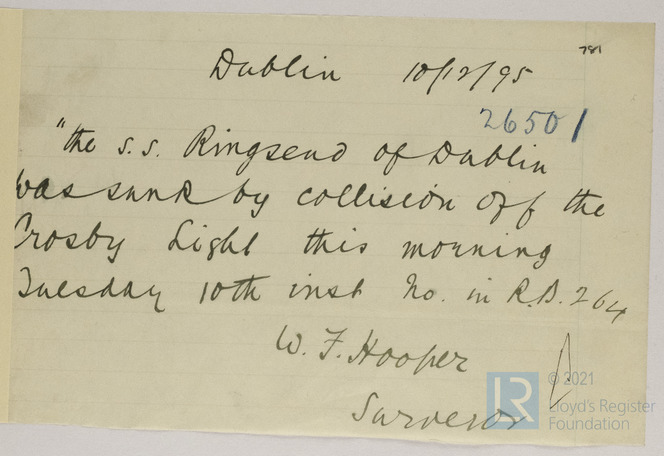 781
Dublin 10/12/95
26501
"the s.s. Ringsend of Dublin
was sunk by collision off the
Crosby Light this morning
Tuesday 10th inst No. in R.B. 264
W. F. Hooper
Surveyor
LR © 2021
Lloyd's Register
Foundation